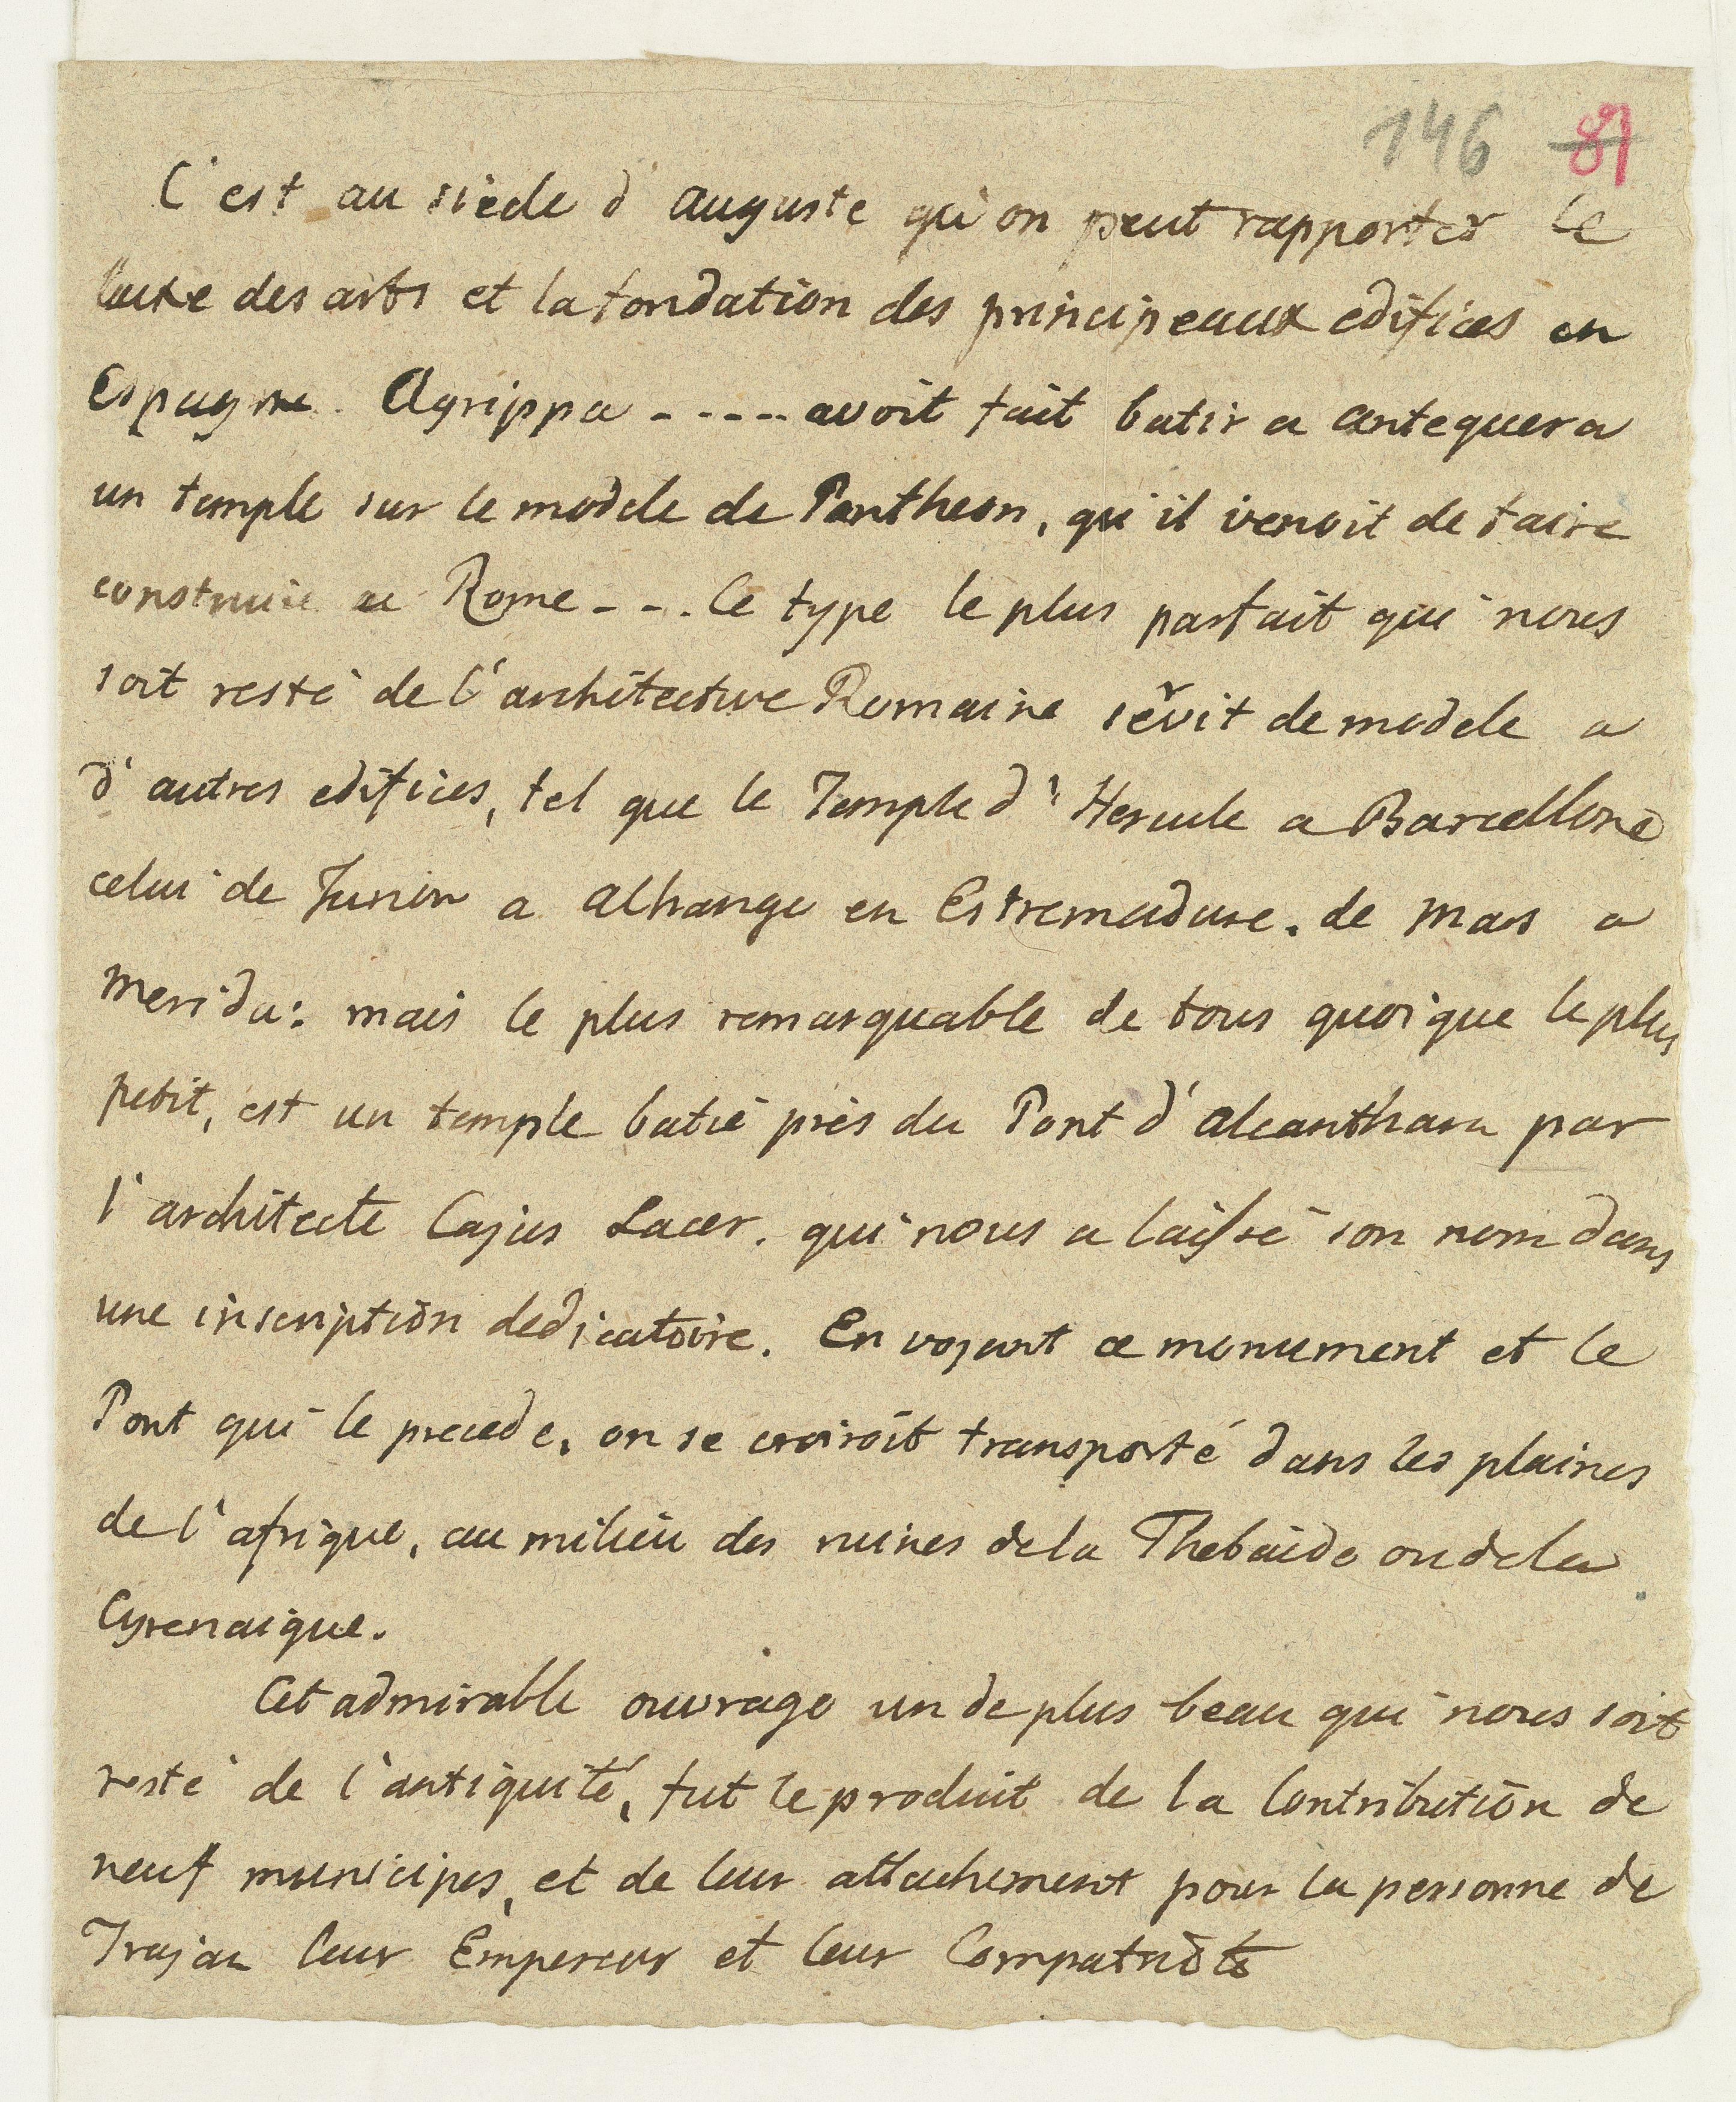 146 81
C'est au siècle d'auguste qu'on peut rapporter le
luxe des arts et la fondation des principeaux edifices en
Espagne. Agrippa - - - - - avoit fait batir a antequera
un temple sur le modele de Pantheon, qu'il venoit de faire
construire a Rome - - . Ce type le plus parfait qui nous
soit resté de l'architecture Romaine sevit de modele a
d'autres edifices, tel que le Temple d'Hercule a Barcellone
celui de Junon a alhange en Estremadure. de Mars a
Merida: mais le plus remarquable de tous quoique le plus
petit, est un temple batie près du Pont d'alcanthara par
l'architecte Cajus Lacer. qui nous a laissé son nom dans
une inscription dedicatoire. En vojant ce monument et le
Pont qui le precede, on se croiroit transporté dans les plaines
de l'afrique, au milieu des ruines de la Thebaide ou de la
Cyrenaique.
Cet admirable ouvrage un de plus beau qui nous soit
resté de l'antiquité, fut le produit de la Contribution de
neuf municipes, et de leur attachement pour la personne de
Trajan leur Empereur et leur Compatriote